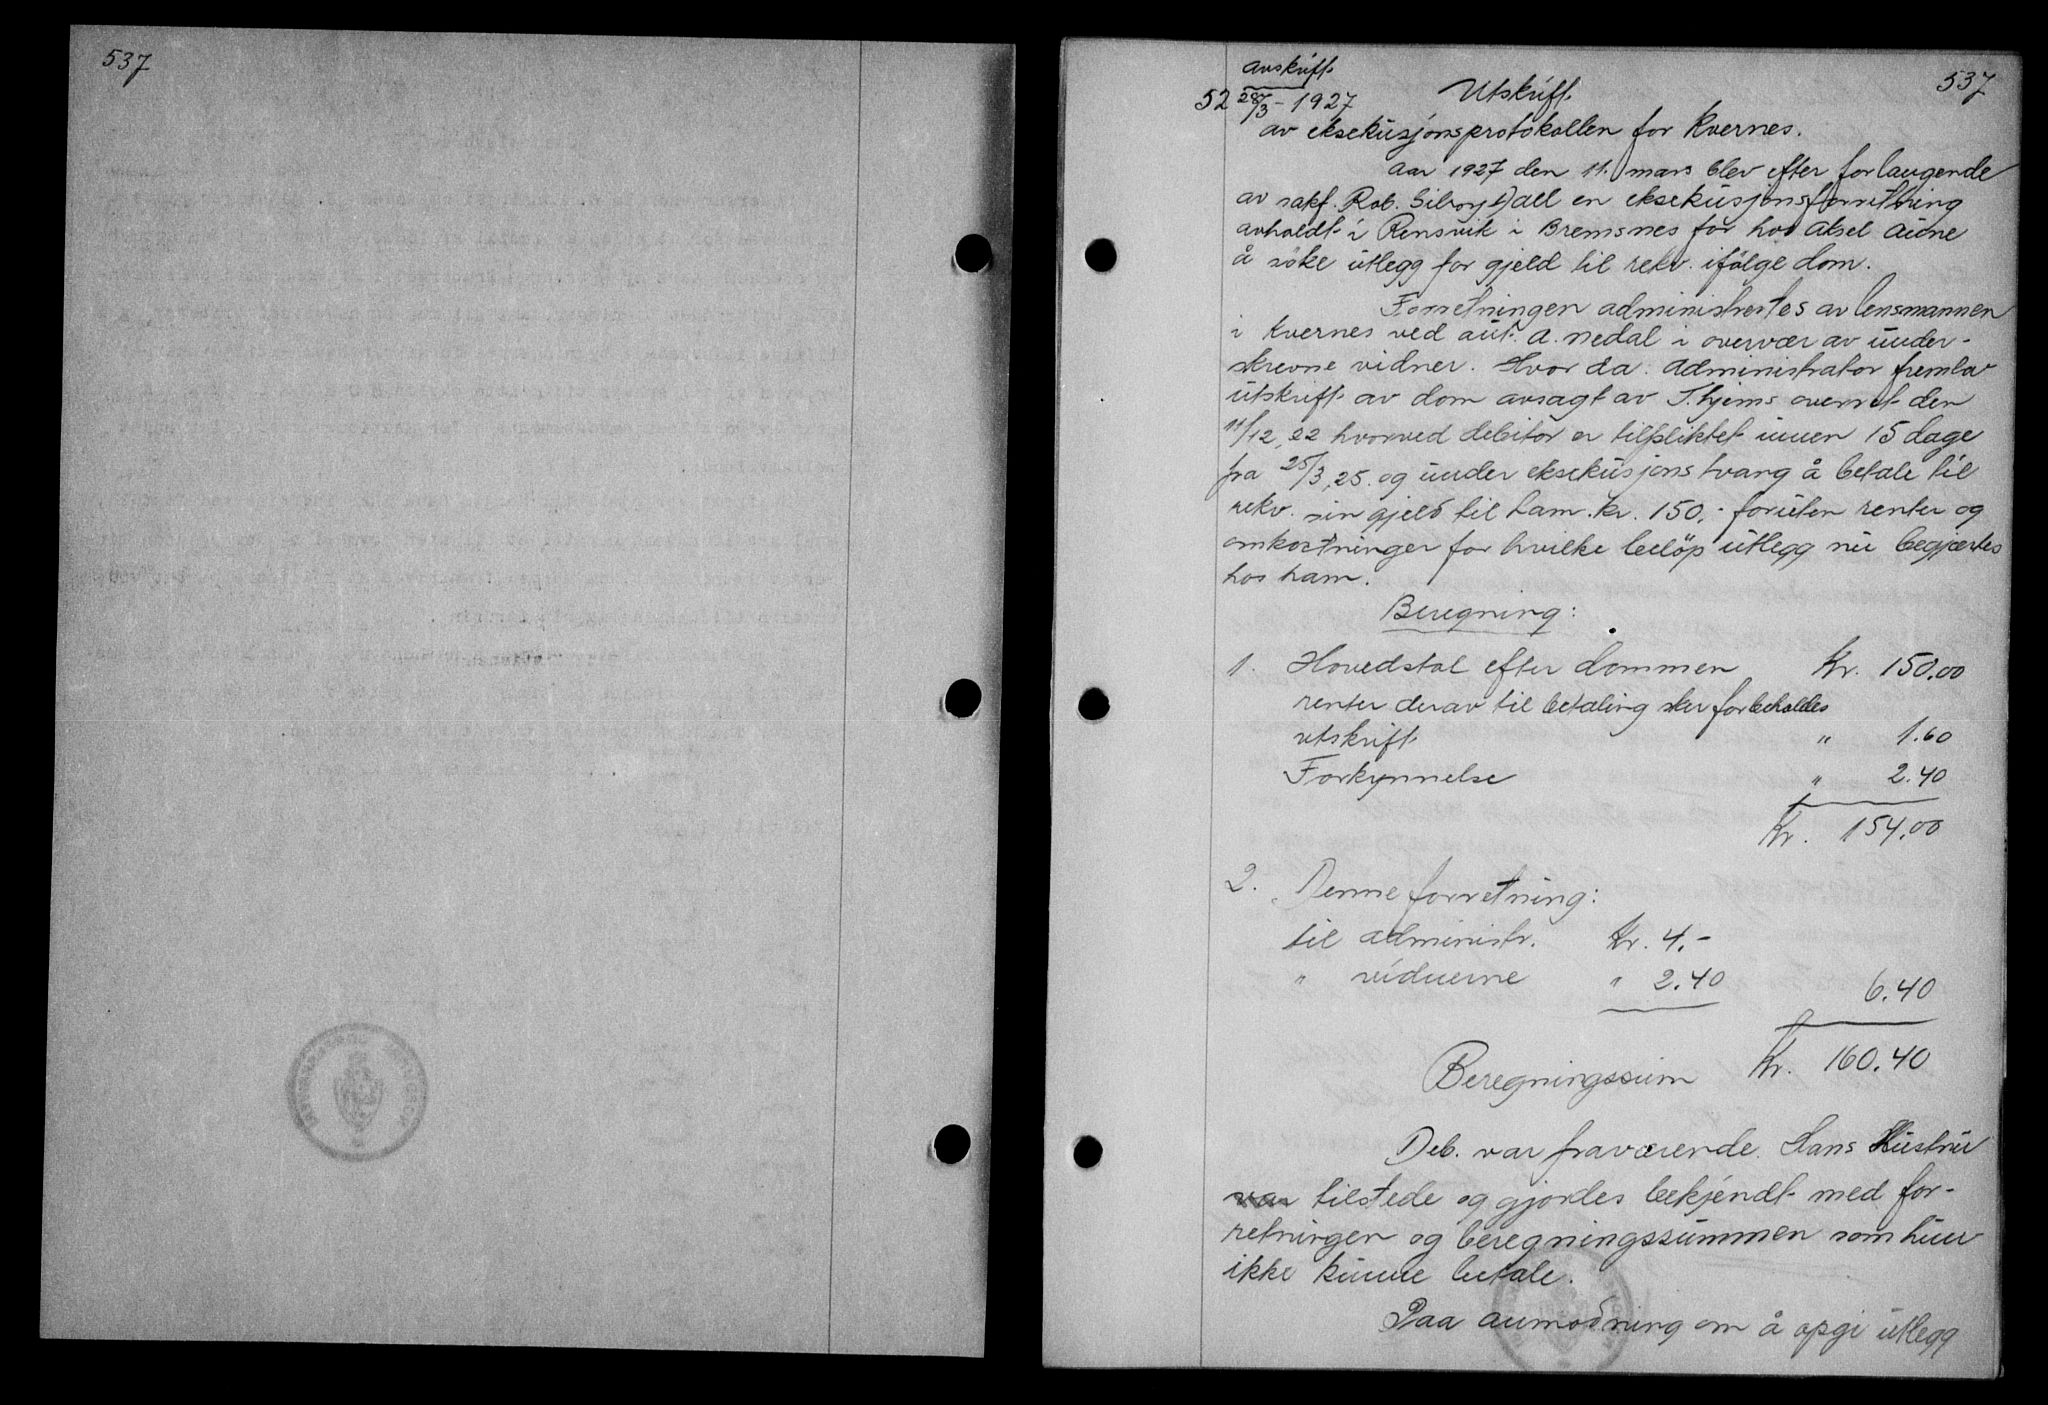 537
537
avskrift
52 28/3 - 1927 Utskrift
av eksekusjonsprotokollen for Kvernes.
Aar 1927 den 11. mars blev efter forlangende
av sakf. Rob. Gilvorj Dall en eksekusjonsforretning
avholdt i Rensvik i Bremsnes for hos Aksel Aune
å söke utlegg for gjeld til rekv. ifölge dom.
Forretningen administrertes av lensmannen
i Kvernes ved aut. A. Nedal i overvær av under-
skrevne vidner. Hvor da. Administrator fremla
utskrift av dom avsagt av T.hjems overret den
11/12, 22 hvorved debitor er tilpliktet innen 15 dage
fra 25/3, 25. og under eksekusjons tvang å betale til
rekv. sin gjeld til ham. kr. 150,- foruten renter og
omkostninger for hvilke belöp utlegg nu begjærtes
hos ham.
Beregning:
1. Hovedstol efter dommen Kr. 150.00
renter derav til betaling sker forbeholdes
utskrift " 1.60
Forkynnelse " 2.40
Kr. 154.00
2. Denne forretning:
til administr. Kr. 4.-
" vidnerne " 2.40 6.40
Beregningssum Kr. 160.40
Deb. var fraværende. Hans Hustru
var tilstede og gjordes bekjendt med for-
retningen og beregningssummen som hun
ikke kunne betale.
Paa anmodning om å opgi utlegg